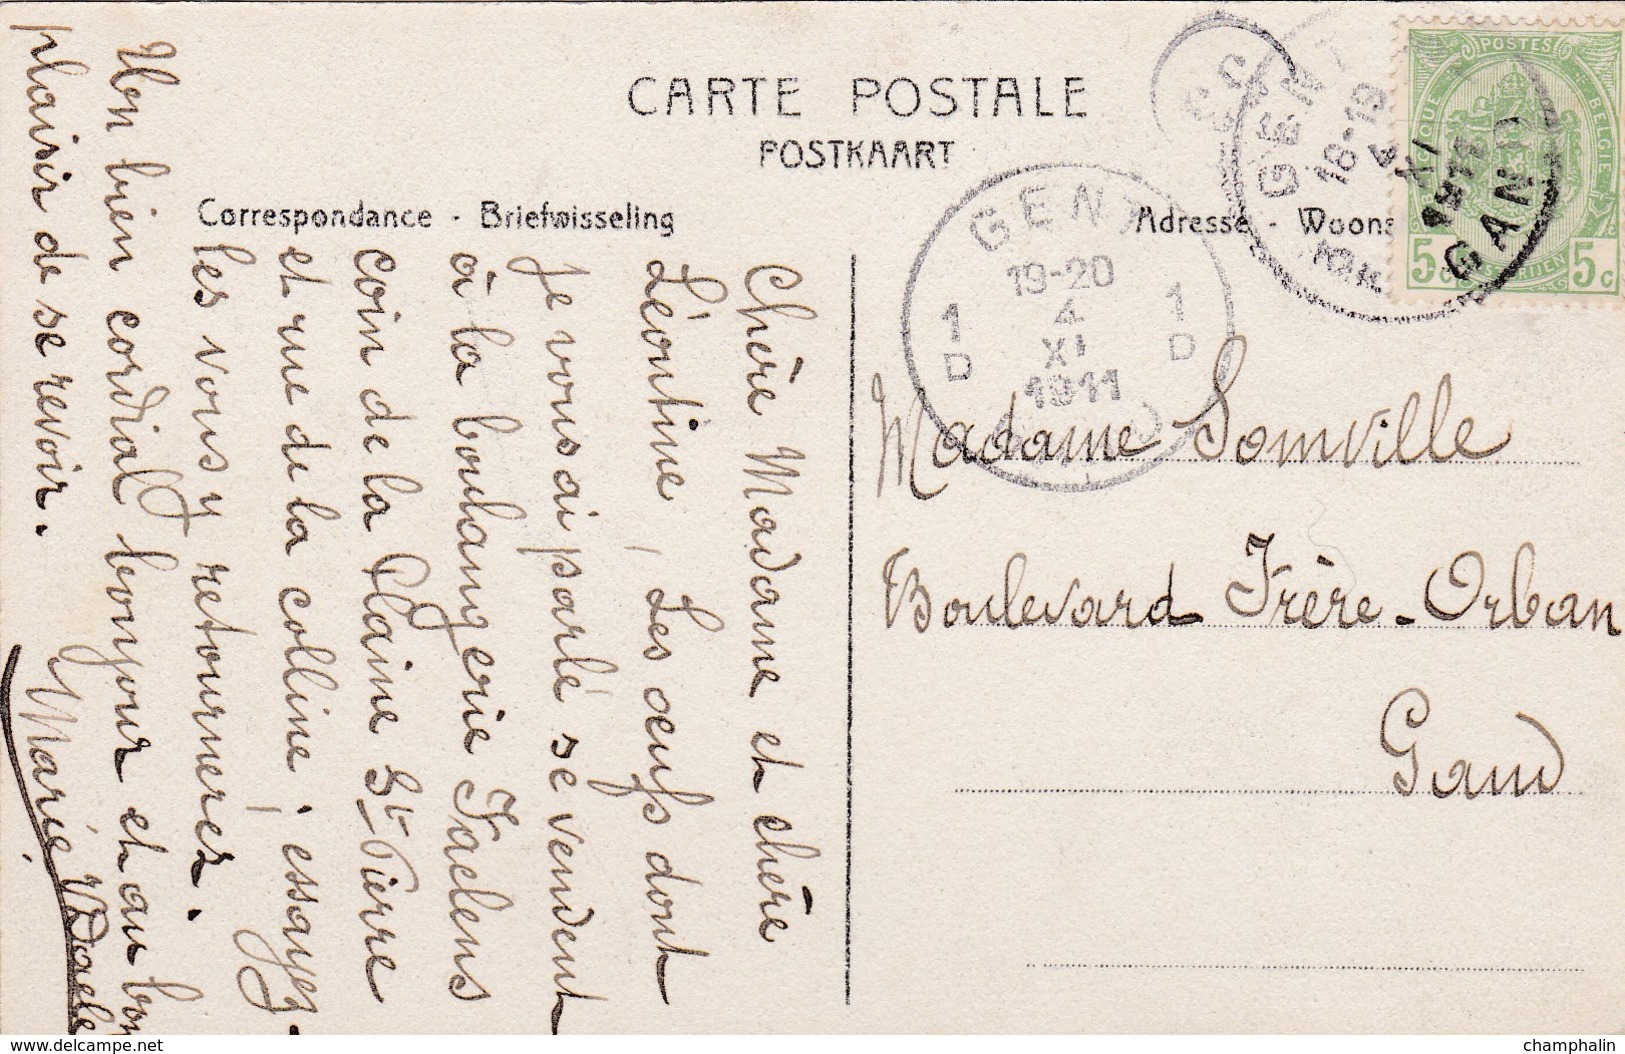 CARTE POSTALE
POSTKAART
Correspondance - Briefwisseling
Adresse - Woons
Chère Madame et chère
Léontine, Les œufs dont
je vous ai parlé se vendent
à la boulangerie Faelens
coin de la Plaine St Pierre
et rue de la colline ; essayez-
les vous y retournerez.
Un bien cordial bonjour et au bon
plaisir de se revoir.
Marie
Madame Somville
Boulevard Frère-Orban
Gand
POSTES
BELGIQUE
5c 5c
GENT
18-19
4
XI
1911
GAND
GENT
19-20
1 4 1
D XI D
1911
www.delcampe.net
champhalin